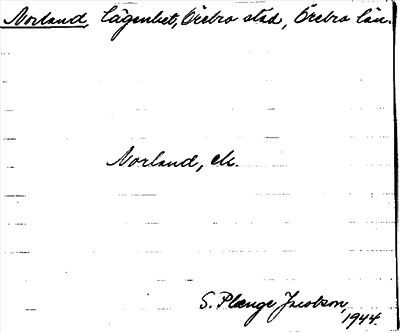 Norland, lägenhet, Örebro stad, Örebro län.
Norland, ek.
S. Plænge Jacobson,
1944